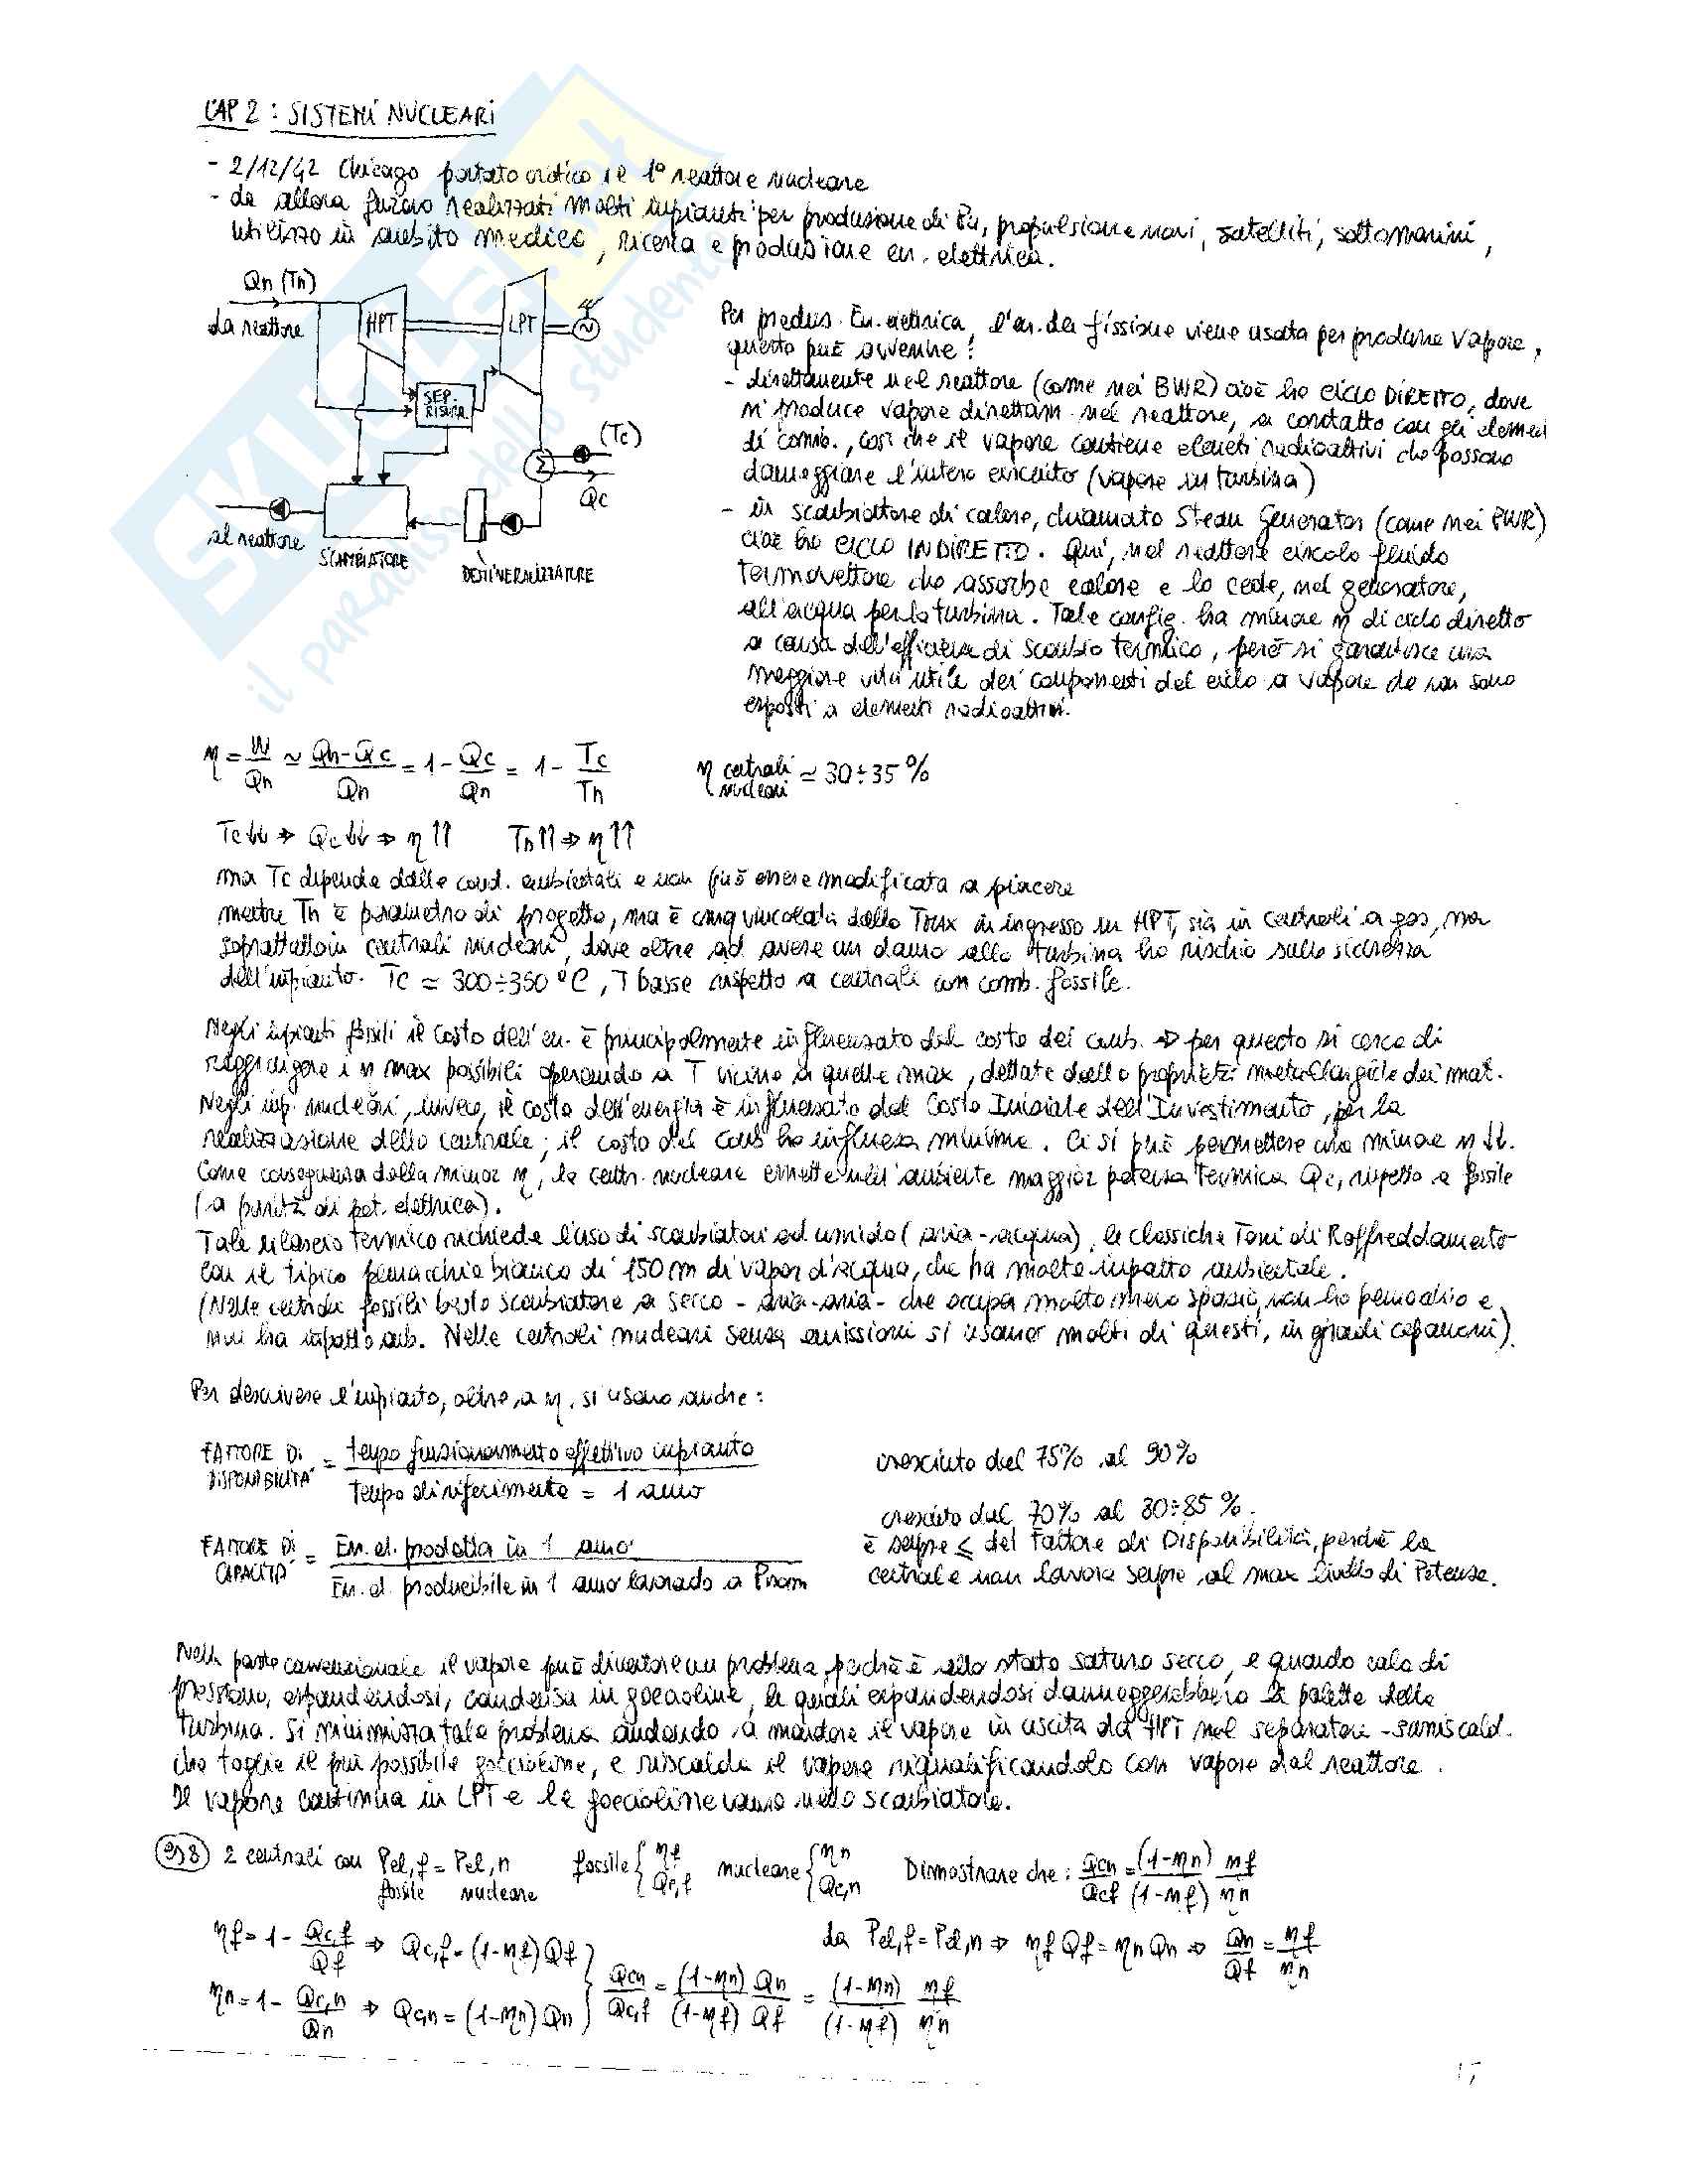 CAP 2 : SISTEMI NUCLEARI
- 2/12/42 Chicago portato critico il 1° reattore nucleare
- da allora furono realizzati molti impianti per produzione di Pu, propulsione navi, satelliti, sottomarini,
utilizzo in ambito medico, ricerca e produzione en. elettrica.
Qn (Tn)
da reattore
HPT
LPT
SEP. RISURR
(Tc)
Qc
al reattore
SCAMBIATORE
DEMINERALIZZATORE
Per produz. En. elettrica, l'en. da fissione viene usata per produrre vapore,
questo può avvenire :
- direttamente nel reattore (come nei BWR) cioè ho CICLO DIRETTO, dove
si produce vapore direttam. nel reattore, a contatto con gli elementi
di comb., così che il vapore contiene elementi radioattivi che possono
danneggiare l'intero circuito (vapore in turbina)
- in scambiatore di calore, chiamato Steam Generator (come nei PWR)
cioè ho CICLO INDIRETTO. Qui, nel reattore circola fluido
termovettore che assorbe calore e lo cede, nel generatore,
all'acqua per la turbina. Tale config. ha minore η di ciclo diretto
a causa dell'efficienza di scambio termico, però si garantisce una
maggiore vita utile dei componenti del ciclo a vapore che non sono
esposti a elementi radioattivi.
η = W/Qn ≃ (Qn-Qc)/Qn = 1 - Qc/Qn = 1 - Tc/Tn
η centrali nucleari ≃ 30÷35 %
Tc↓↓ ⇒ Qc↓↓ ⇒ η↑↑ Tn↑↑ ⇒ η↑↑
ma Tc dipende dalle cond. ambientali e non può essere modificata a piacere
mentre Tn è parametro di progetto, ma è cmq vincolata dalla Tmax di ingresso in HPT, sia in centrali a gas, ma
soprattutto in centrali nucleari, dove oltre ad avere un danno alla turbina ho rischio sulla sicurezza
dell'impianto. Tc ≃ 300÷350 °C, T basse rispetto a centrali con comb. fossile.
Negli impianti fossili il costo dell'en. è principalmente influenzato dal costo dei comb. ⇒ per questo si cerca di
raggiungere i η max possibili operando a T vicine a quelle max, dettate dalle proprietà metallurgiche dei mat.
Negli imp. nucleari, invece, il costo dell'energia è influenzato dal Costo Iniziale dell'Investimento, per la
realizzazione della centrale; il costo del comb ha influenza minima. Ci si può permettere una minore η ↓↓.
Come conseguenza della minor η, la centr. nucleare emette nell'ambiente maggior potenza termica Qc, rispetto a fossile
(a parità di pot. elettrica).
Tale rilascio termico richiede l'uso di scambiatori ad umido (aria-acqua), le classiche Torri di Raffreddamento
con il tipico pennacchio bianco di 150 m di vapor d'acqua, che ha molto impatto ambientale.
(Nelle centrali fossili basta scambiatore a secco - aria-aria - che occupa molto meno spazio, non ho pennacchio e
non ha impatto amb. Nelle centrali nucleari senza emissioni si usano molti di questi, in grandi capannoni).
Per descrivere l'impianto, oltre a η, si usano anche :
FATTORE DI DISPONIBILITÀ = tempo funzionamento effettivo impianto / Tempo di riferimento = 1 anno
cresciuto dal 75% al 90%
FATTORE DI CAPACITÀ = En. el. prodotta in 1 anno / En. el. producibile in 1 anno lavorando a Pnom
cresciuto dal 70% al 80÷85 %.
è sempre ≤ del Fattore di Disponibilità, perchè la
centrale non lavora sempre al max livello di Potenza.
Nella parte convenzionale il vapore può diventare un problema, perchè è allo stato saturo secco, e quando cala di
pressione, espandendosi, condensa in goccioline, le quali espandendosi danneggerebbero le palette della
turbina. Si minimizza tale problema andando a mandare il vapore in uscita da HPT nel separatore - surriscald.
che toglie il più possibile goccioline, e riscalda il vapore riqualificandolo con vapore dal reattore.
Il vapore continua in LPT e le goccioline vanno nello scambiatore.
es 8 2 centrali con Pel,f = Pel,n fossile { ηf Qc,f nucleare { ηn Qc,n Dimostrare che : Qcn/Qcf = (1-ηn)/(1-ηf) ηf/ηn
fossile nucleare
ηf = 1 - Qc,f/Qf ⇒ Qc,f = (1-ηf) Qf
da Pel,f = Pel,n ⇒ ηf Qf = ηn Qn ⇒ Qn/Qf = ηf/ηn
ηn = 1 - Qc,n/Qn ⇒ Qc,n = (1-ηn) Qn } Qcn/Qc,f = (1-ηn)/(1-ηf) Qn/Qf = (1-ηn)/(1-ηf) ηf/ηn
SKUOLA.net
il paradiso dello studente